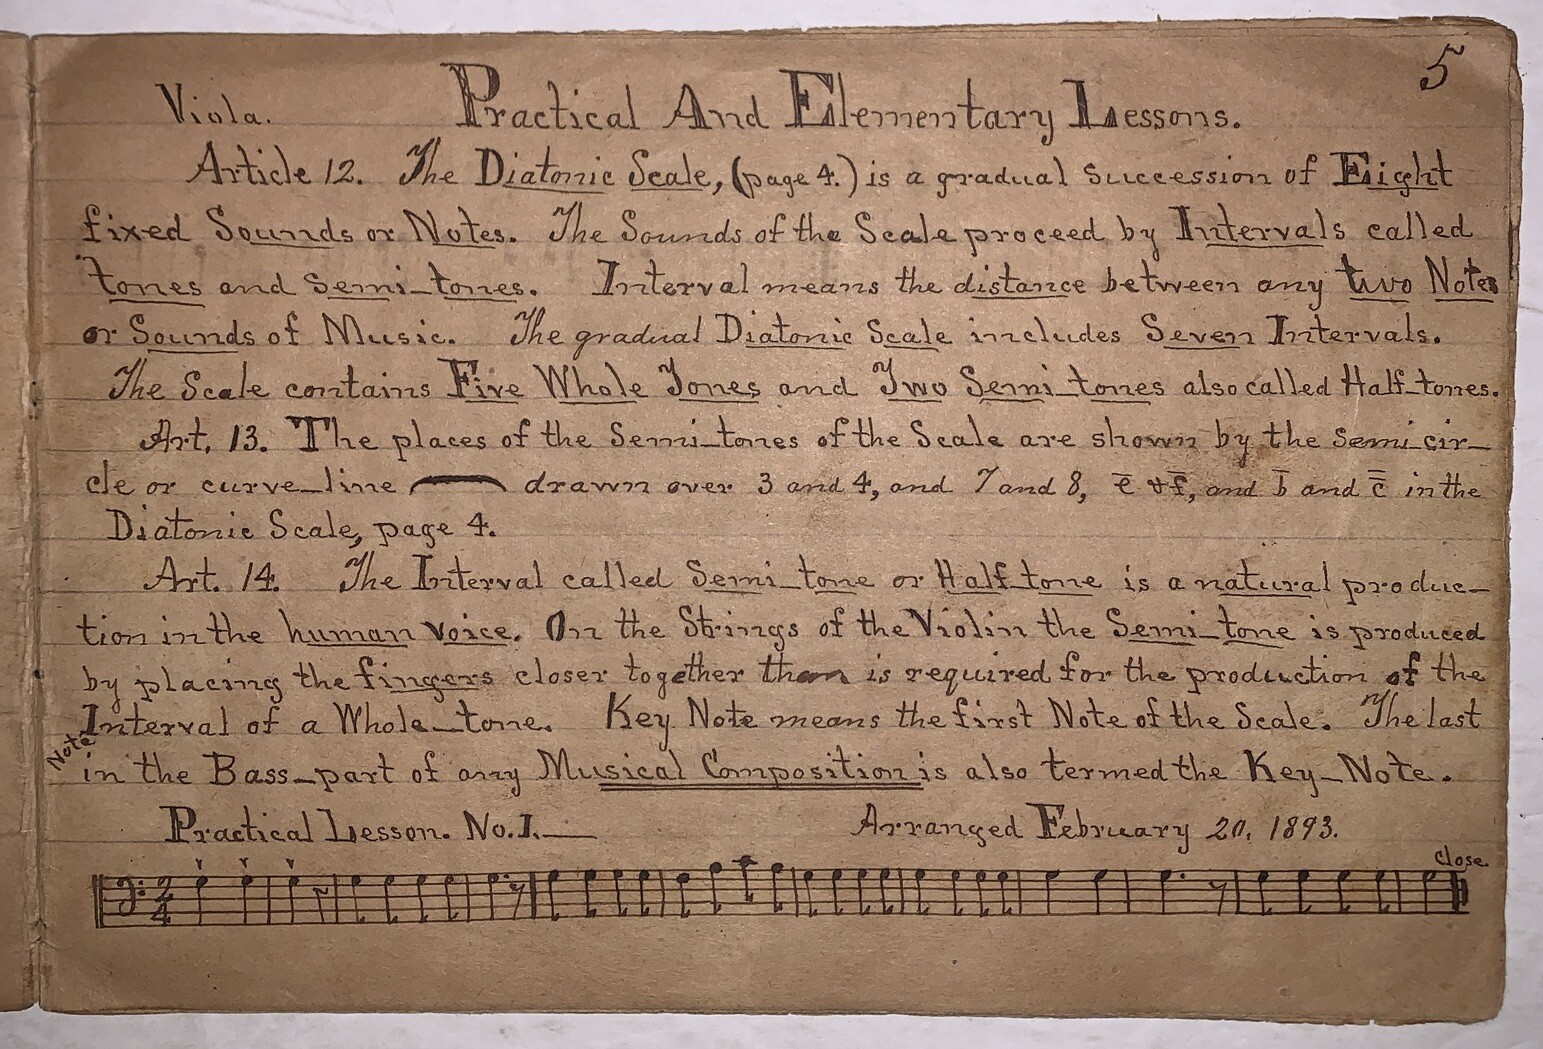 5
Viola. Practical And Elementary Lessons.
Article 12. The Diatonic Scale, (page 4.) is a gradual succession of Eight
fixed Sounds or Notes. The Sounds of the Scale proceed by Intervals called
tones and Semi-tones. Interval means the distance between any two Notes
or Sounds of Music. The gradual Diatonic Scale includes Seven Intervals.
The Scale contains Five Whole Tones and Two Semi-tones also called Half-tones.
Art. 13. The places of the Semi-tones of the Scale are shown by the Semi cir-
cle or curve-line drawn over 3 and 4, and 7 and 8, e̅ & f̅, and b̅ and c̿ in the
Diatonic Scale, page 4.
Art. 14. The Interval called Semi-tone or Half-tone is a natural produc-
tion in the human voice. On the Strings of the Violin the Semi-tone is produced
by placing the fingers closer together than is required for the production of the
Interval of a Whole-tone. Key Note means the first Note of the Scale. The last
Note
in the Bass-part of any Musical Composition is also termed the Key-Note.
Practical Lesson. No. 1. Arranged February 20, 1893.
close.
2
4